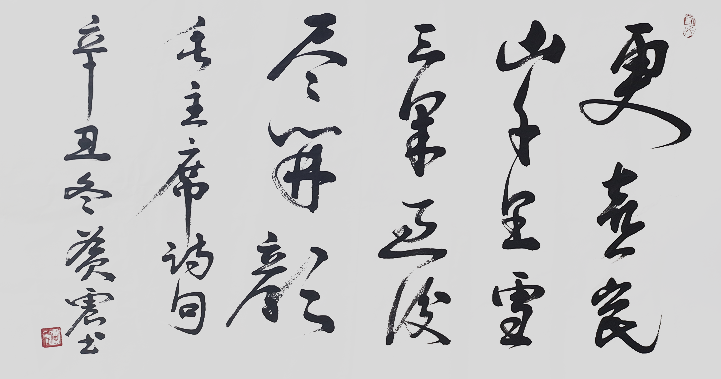 更喜岷
山千里雪
三军过后
尽开颜
毛主席诗句
辛丑冬黄震书